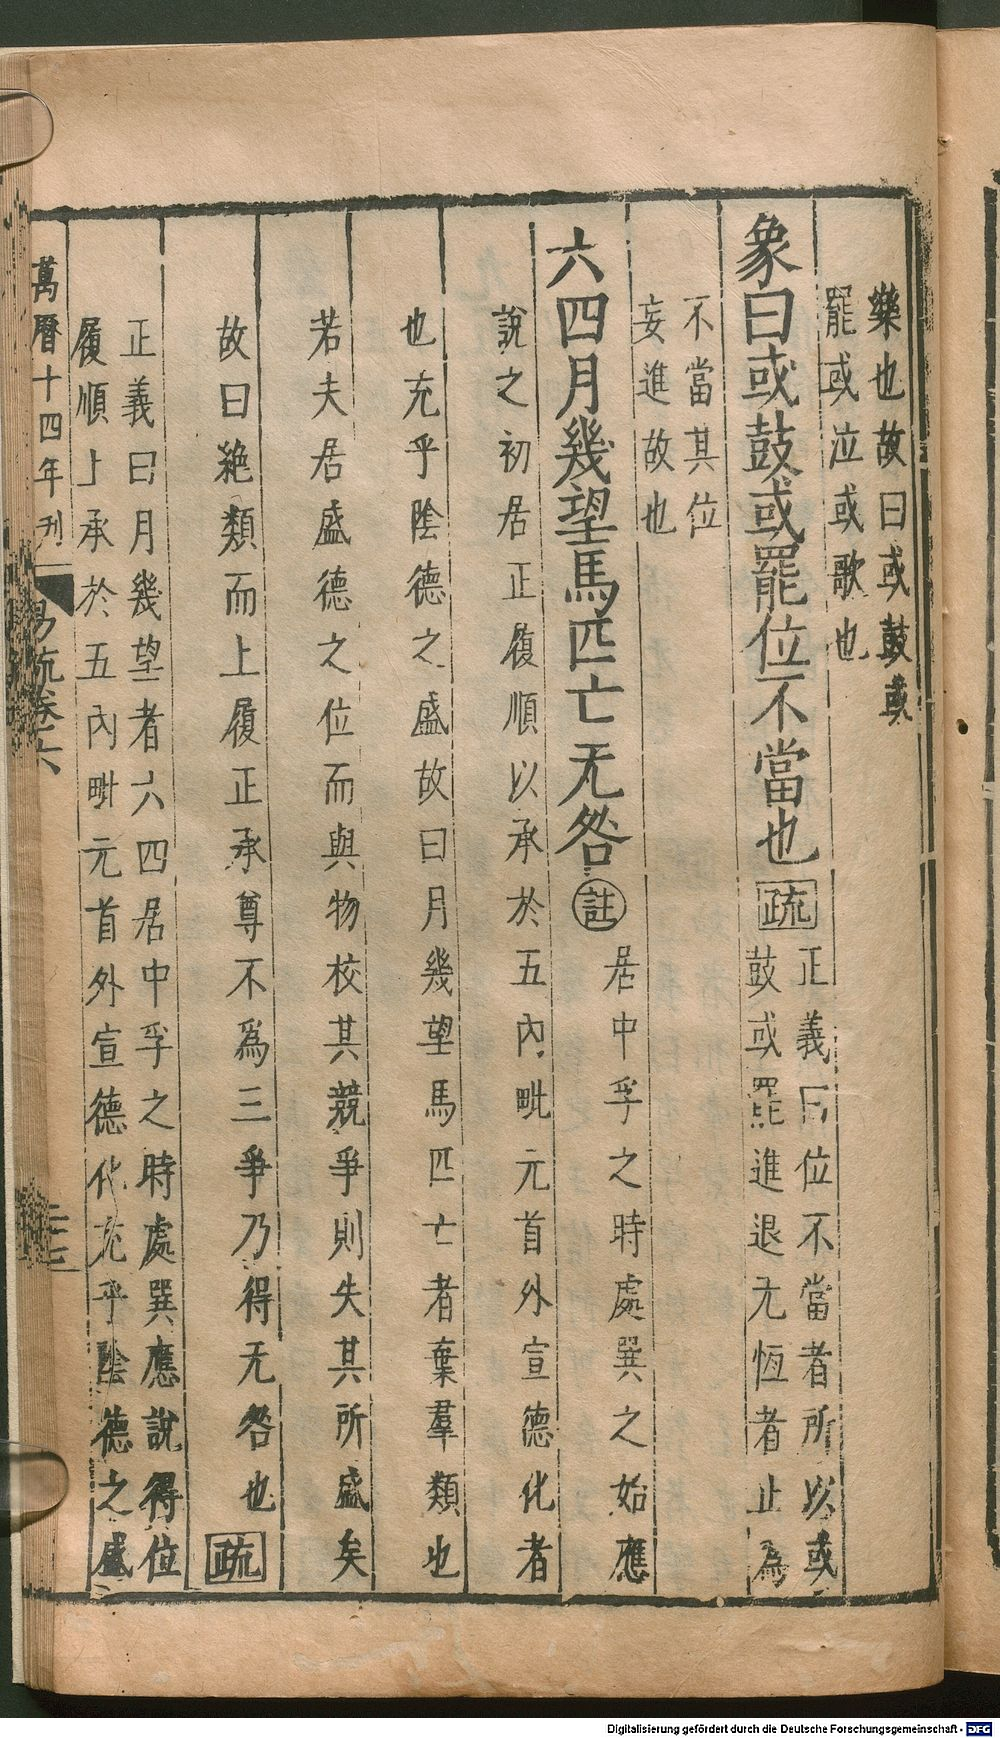 樂也故曰或鼓或
罷或泣或歌也
象曰或鼓或罷位不當也疏
正義曰位不當者所以或
鼓或罷進退无恆者止為
不當其位
妄進故也
六四月幾望馬匹亡无咎註
居中孚之時處巽之始應
說之初居正履順以承於五內毗元首外宣德化者
也充乎陰德之盛故曰月幾望馬匹亡者棄羣類也
若夫居盛德之位而與物校其競爭則失其所盛矣
故曰絶類而上履正承尊不為三爭乃得无咎也疏
正義曰月幾望者六四居中孚之時處巽應說得位
履順上承於五內毗元首外宣德化充乎陰德之盛
萬曆十四年刊
易疏卷六
二十七
Digitalisierung gefördert durch die Deutsche Forschungsgemeinschaft - DFG